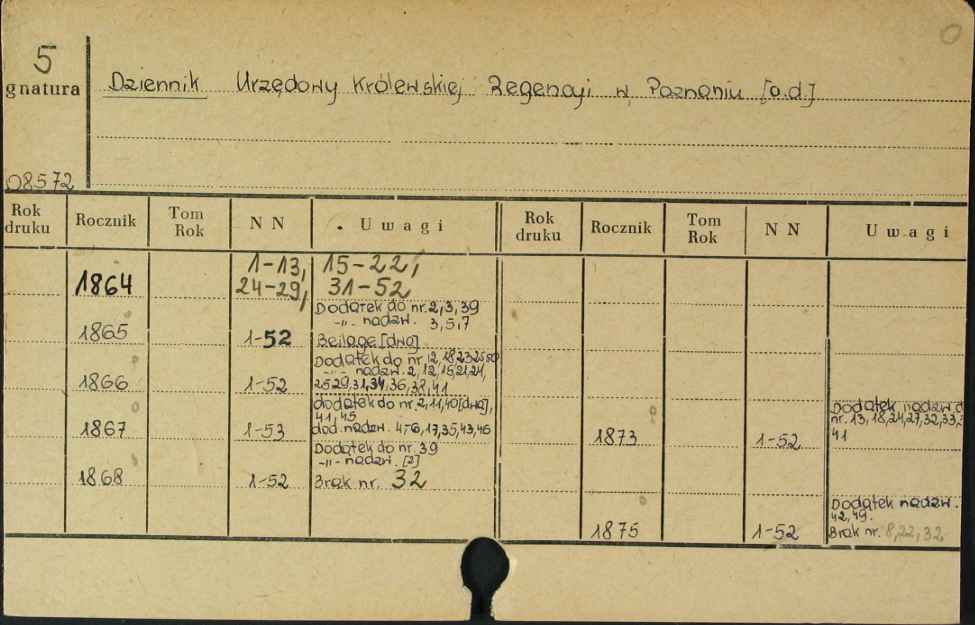 5
gnatura
Dziennik Urzędowy Królewskiej Regencyi w Poznaniu [o.d.]
08572
Rok druku Rocznik Tom Rok N N Uwagi Rok druku Rocznik Tom Rok N N Uwagi
1864 1-13, 15-22,
24-29, 31-52
Dodatek do nr. 2, 3, 39
-„- nadzw. 3, 5, 7
1865 1-52 Beilage [dwa]
Dodatek do nr. 12, 18, 23
-„- nadzw. 2, 12, 15, 21, 24,
1866 1-52 25, 29, 31, 34, 36, 38, 41
dodatek do nr. 2, 11, 40 [dwa],
41, 45
1867 1-53 dod. nadzw. 17, 35, 43, 46
Dodatek do nr. 39
-„- nadzw. [2]
1868 1-52 Brak nr. 32
Dodatek nadzw. d
nr. 13, 18, 24, 27, 32, 33,
1873 1-52 41
Dodatek nadzw.
42, 49.
1875 1-52 Brak nr. 8, 22, 32